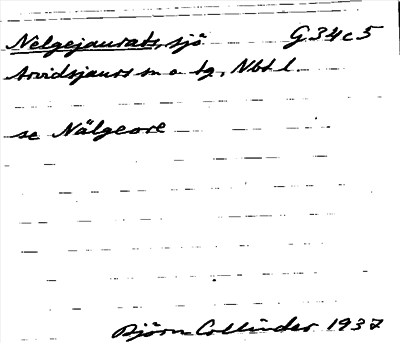 Nelgejaurats, sjö G34c5
Arvidsjaurs sn o. tg, Nbt l.
se Nälgeore
Björn Collinder 1937